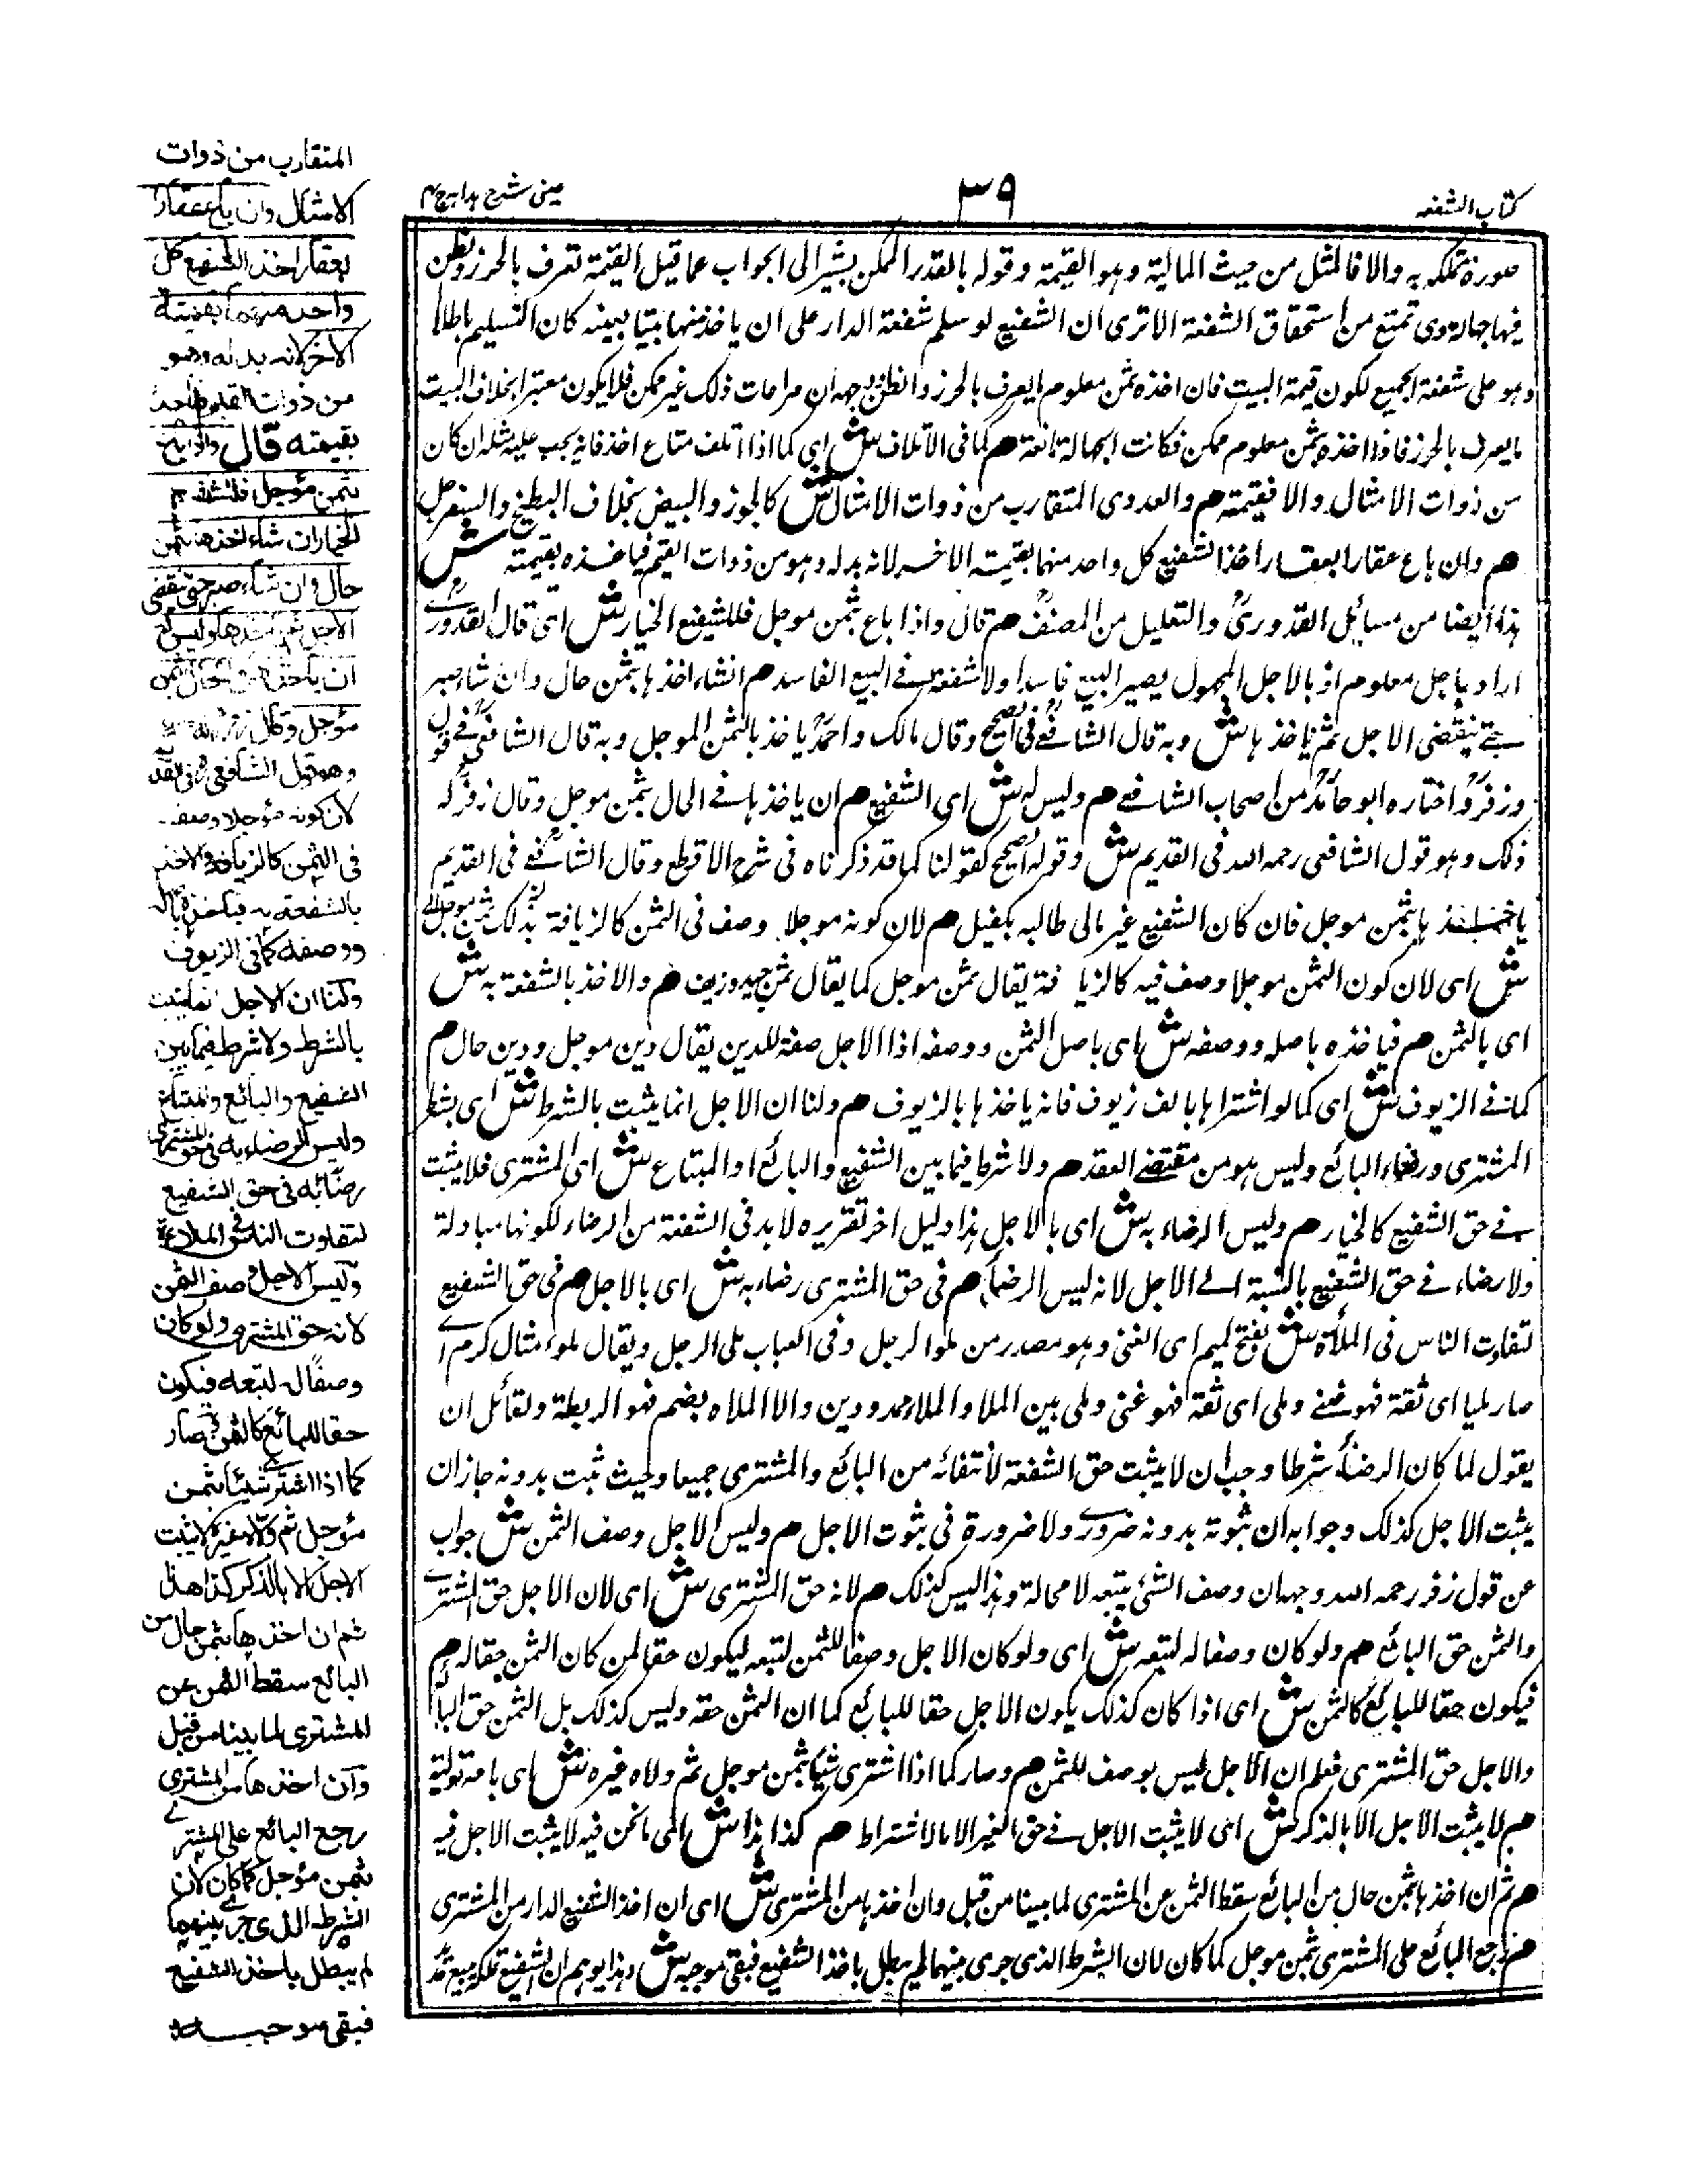 كتاب الشفعه
٣٩
عينى شرح هدايه ج ٤
صورة تملكه به والا فالمثل من حيث المالية وهو القيمة وقوله بالقدر الممكن يشير الى الجواب عما قيل القيمة تعرف بالحرز والظن
فيها جهالة وى تمنع من استحقاق الشفعة الا ترى ان الشفيع لو سلم شفعة الدار على ان ياخذ منها بيتا بعينه كان التسليم باطلا
وهو على شفعة الجميع لكون قيمة البيت فان اخذه بثمن معلوم يعرف بالحرز والظن وجهه ان مراعات ذلك غير ممكن فلا يكون معتبرا بخلاف البيت
ما يعرف بالحرز فاذا اخذه بثمن معلوم ممكن فكانت الجهالة مانعة هم كما فى الاتلاف ش اى كما اذا اتلف متاع اخذ فانه يجب عليه مثله ان كان
من ذوات الامثال والا فقيمته هم والعددى المتقارب من ذوات الامثال ش كالجوز والبيض بخلاف البطيخ والسفرجل
هم وان باع عقارا بعقار اخذ الشفيع كل واحد منهما بقيمة الاخر لانه بدله وهو من ذوات القيم فياخذه بقيمته ش
هذا ايضا من مسائل القدورى والتعليل من المصنف هم قال واذا باع بثمن موجل فللشفيع الخيار ش اى قال القدورى
اراد باجل معلوم اذ بالاجل المجهول يصير البيع فاسدا ولا شفعة فى البيع الفاسد هم انشاء اخذها بثمن حال وان شاء صبر
حتى ينقضى الاجل ثم ياخذها ش وبه قال الشافعى فى الصحيح وقال مالك واحمد ياخذ بالثمن الموجل وبه قال الشافعى فى قول
وزفر واختاره ابو حامد من اصحاب الشافعى هم وليس له ش اى الشفيع هم ان ياخذها فى الحال بثمن موجل وقال زفر له
ذلك وهو قول الشافعى رحمه الله فى القديم ش وقوله الصحيح كقولنا كما قد ذكرناه فى شرح الاقطع وقال الشافعى فى القديم
ياخذها بثمن موجل فان كان الشفيع غير مالى طالبه بكفيل هم لان كونه موجلا وصف فى الثمن كالزيافة
ش اى لان كون الثمن موجلا وصف فيه كالزيافة يقال ثمن موجل كما يقال ثمن جيد وزيف هم والاخذ بالشفعة به ش
اى بالثمن هم فياخذه باصله ووصفه ش اى باصل الثمن ووصفه اذا الاجل صفة للدين يقال دين موجل ودين حال هم
كما فى الزيوف ش اى كما لو اشتراها بالف زيوف فانه ياخذها بالزيوف هم ولنا ان الاجل انما يثبت بالشرط ش اى بشرط
المشترى ورضاء البائع وليس هو من مقتضى العقد هم ولا شرط فيما بين الشفيع والبائع او المبتاع ش اى المشترى فلا يثبت
فى حق الشفيع كالخيار هم وليس الرضاء به ش اى بالاجل هذا دليل اخر تقريره لا بد فى الشفعة من الرضاء لكونها مبادلة
ولا رضاء فى حق الشفيع بالنسبة الى الاجل لانه ليس الرضاء هم فى حق المشترى رضاء به ش اى بالاجل هم فى حق الشفيع
لتفاوت الناس فى الملأة ش بفتح الميم اى الغنى وهو مصدر من ملوا لرجل وفى العباب ملى الرجل ويقال ملوء مثال كرم اى
صار مليا اى ثقة فهو غنى وملى اى ثقة فهو غنى وملى بين الملا والملاء ممدودين والا الملاه بضم فهو الربطة ولقائل ان
يقول لما كان الرضاء شرطا وجب ان لا يثبت حق الشفعة لانتفائه من البائع والمشترى جميعا وحيث ثبت بدونه جاز ان
يثبت الاجل كذلك وجوابه ان ثبوته بدونه ضرورى ولا ضرورة فى ثبوت الاجل هم وليس الاجل وصف الثمن ش جواب
عن قول زفر رحمه الله وجهه ان وصف الشئ يتبعه لا محالة وهذا ليس كذلك هم لانه حق المشترى ش اى لان الاجل حق المشترى
والثمن حق البائع هم ولو كان وصفا له لتبعه ش اى ولو كان الاجل وصفا للثمن لتبعه ليكون حقا لمن كان الثمن حقا له هم
فيكون حقا للبائع كالثمن ش اى اذا كان كذلك يكون الاجل حقا للبائع كما ان الثمن حقه وليس كذلك بل الثمن حق البائع
والاجل حق المشترى فعلم ان الاجل ليس بوصف للثمن هم وصار كما اذا اشترى شيئا بثمن موجل ثم ولاه غيره ش اى باعه تولية
هم لا يثبت الاجل الا بالذكر ش اى لا يثبت الاجل فى حق الغير الا بالاشتراط هم كذا هذا ش اى ما نحن فيه لا يثبت الاجل فيه
هم ثم ان اخذها بثمن حال من البائع سقط الثمن عن المشترى لما بينا من قبل وان اخذها من المشترى ش اى ان اخذ الشفيع الدار من المشترى
هم رجع البائع على المشترى بثمن موجل كما كان لان الشرط الذى جرى بينهما لم يبطل باخذ الشفيع فبقى موجبه ش وهذا يوهم ان الشفيع تملكه ببيع
المتقارب من ذوات
الامثال وان باع عقارا
بعقار اخذ الشفيع كل
واحد منهما بقيمة
الاخر لانه بدله وهو
من ذوات القيم فياخذه
بقيمته قال واذا باع
بثمن مؤجل فللشفيع
الخيار ان شاء اخذها بثمن
حال وان شاء صبر حتى ينقضى
الاجل ثم ياخذها وليس له
ان ياخذها فى الحال بثمن
مؤجل وقال زفر
وهو قول الشافعى فى القديم
لان كونه مؤجلا وصف
فى الثمن كالزيافة والاخذ
بالشفعة به فياخذه باصله
ووصفه كما فى الزيوف
ولنا ان الاجل انما يثبت
بالشرط ولا شرط فيما بين
الشفيع والبائع والمبتاع
وليس الرضاء به فى حق المشترى
رضاء به فى حق الشفيع
لتفاوت الناس فى الملاءة
وليس الاجل وصف الثمن
لانه حق المشترى ولو كان
وصفا له لتبعه فيكون
حقا للبائع كالثمن وصار
كما اذا اشترى شيئا بثمن
مؤجل ثم ولاه غيره لا يثبت
الاجل الا بالذكر كذا هذا
ثم ان اخذها بثمن حال من
البائع سقط الثمن عن
المشترى لما بينا من قبل
وان اخذها من المشترى
رجع البائع على المشترى
بثمن مؤجل كما كان لان
الشرط الذى جرى بينهما
لم يبطل باخذ الشفيع
فبقى موجبه